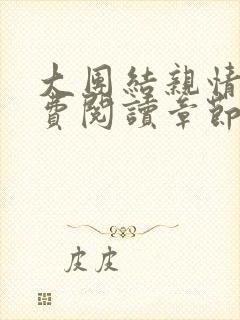 大團結親情
費閱讀章節
皮皮